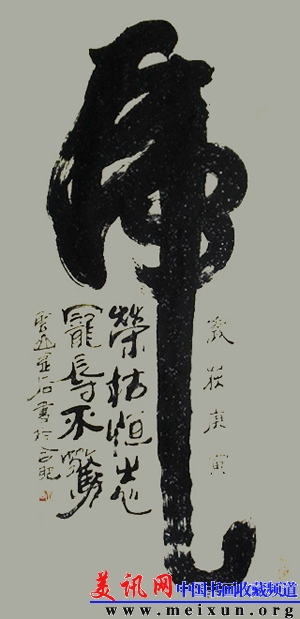 虎
庚寅
榮枯
寵辱不驚
石書於合肥
美讯网 中国书画收藏频道
www.meixun.org